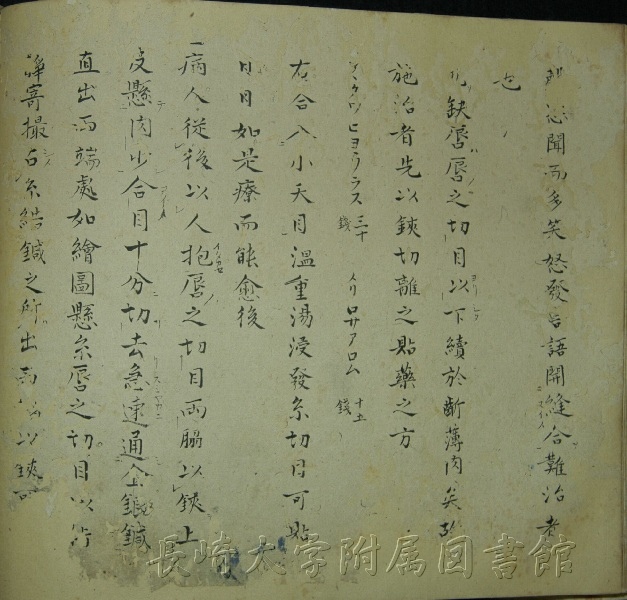 恐聞而多笑怒發言語開縫合難治者
也
凡缺唇唇之切目以下續於齗薄肉矣故
施治者先以鋏切離之貼藥之方
ヒヨウラス 三十錢 メリ ロサアロム 十五錢
右合入小天目溫重湯浸發糸切目可貼
日日如是療而能愈後
一病人從後以人抱唇之切目兩脇以鋏上
皮懸肉少合目十分切去急速通金鍼鍼
直出兩端處如繪圖懸糸唇之切目以
寄撮白糸結鍼之所出兩以鋏
長崎大学附属図書館